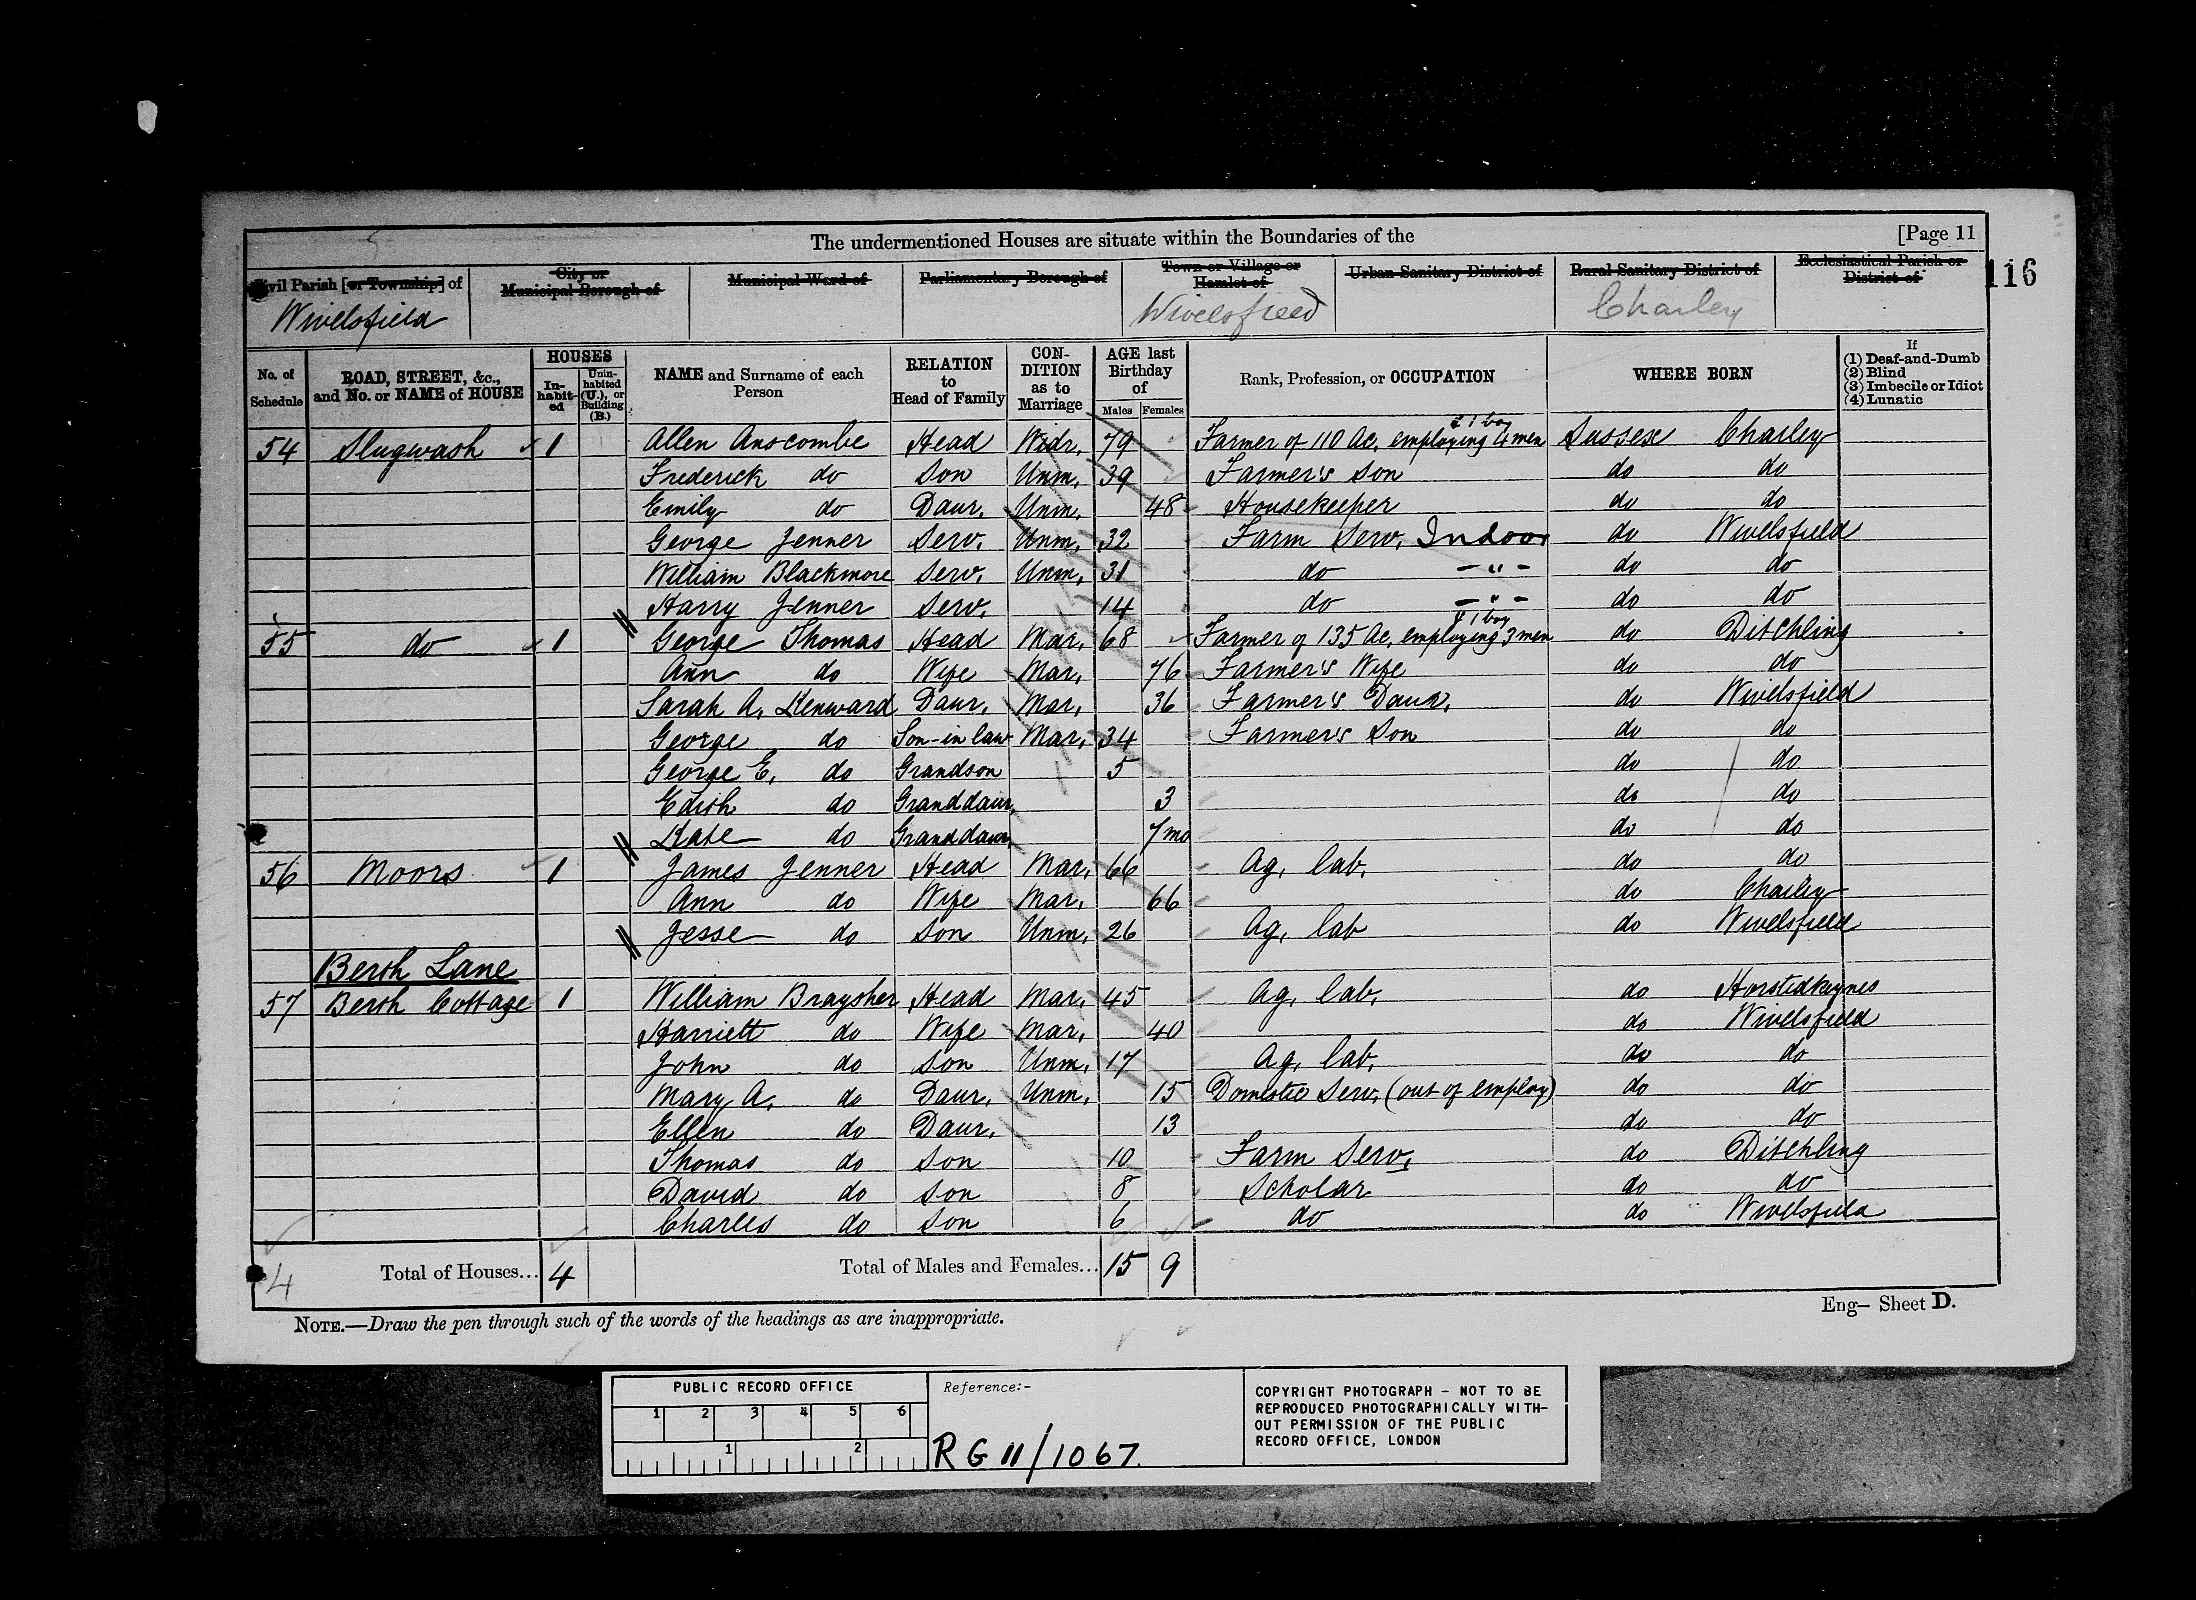 The undermentioned Houses are situate within the Boundaries of the [Page 11
116
Civil Parish [or Township] of City or Municipal Borough of Municipal Ward of Parliamentary Borough of Town or Village or Hamlet of Urban Sanitary District of Rural Sanitary District of Ecclesiastical Parish or District of
Wivelsfield Wivelsfield Chailey
No. of Schedule ROAD, STREET, &c., and No. or NAME of HOUSE HOUSES In-habit-ed Unin-habited (U.), or Building (B.) NAME and Surname of each Person RELATION to Head of Family CON-DITION as to Marriage AGE last Birthday of Males Females Rank, Profession, or OCCUPATION WHERE BORN If (1) Deaf-and-Dumb (2) Blind (3) Imbecile or Idiot (4) Lunatic
54 Slugwash 1 Allen Anscombe Head Widr. 79 Farmer of 110 Ac. employing 4 men & 1 boy Sussex Chailey
Frederick do Son Unm. 39 Farmer's Son do do
Emily do Daur. Unm. 48 Housekeeper do do
George Jenner Serv. Unm. 32 Farm Serv. Indoor do Wivelsfield
William Blackmore Serv. Unm. 31 do - " - do do
Harry Jenner Serv. 14 do - " - do do
55 do 1 George Thomas Head Mar. 68 Farmer of 135 Ac. employing 3 men & 1 boy do Ditchling
Ann do Wife Mar. 76 Farmer's Wife do do
Sarah A. Kenward Daur. Mar. 36 Farmer's Daur. do Wivelsfield
George do Son-in law Mar. 34 Farmer's Son do do
George E. do Grandson 5 do do
Edith do Granddaur. 3 do do
Kate do Granddaur. 7 mo do do
56 Moors 1 James Jenner Head Mar. 66 Ag. lab. do do
Ann do Wife Mar. 66 do Chailey
Jesse do Son Unm. 26 Ag. lab do Wivelsfield
Berth Lane
57 Berth Cottage 1 William Braysher Head Mar. 45 Ag. lab. do Horstedkeynes
Harriett do Wife Mar. 40 do Wivelsfield
John do Son Unm. 17 Ag. lab. do do
Mary A. do Daur. Unm. 15 Domestic Serv. (out of employ) do do
Ellen do Daur. 13 do do
Thomas do Son 10 Farm Serv. do Ditchling
David do Son 8 Scholar do do
Charles do Son 6 do do Wivelsfield
4 Total of Houses... 4 Total of Males and Females... 15 9
NOTE.—Draw the pen through such of the words of the headings as are inappropriate.
Eng— Sheet D.
PUBLIC RECORD OFFICE
1 2 3 4 5 6
1 2
Reference:-
RG 11/1067
COPYRIGHT PHOTOGRAPH - NOT TO BE
REPRODUCED PHOTOGRAPHICALLY WITH-
OUT PERMISSION OF THE PUBLIC
RECORD OFFICE, LONDON